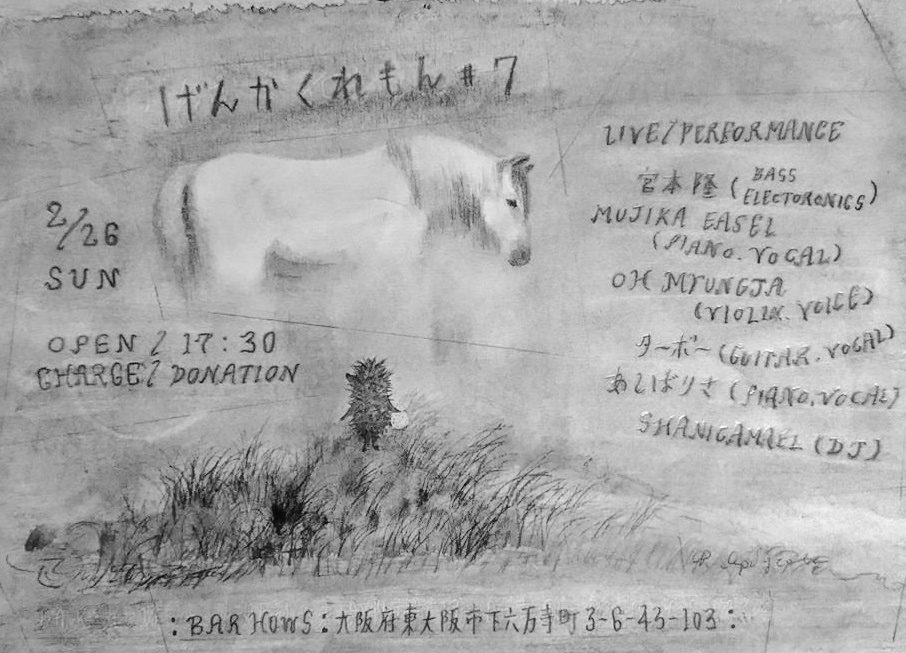 げんかくれもん#7
2/26
SUN
OPEN / 17:30
CHARGE / DONATION
LIVE/PERFORMANCE
宮本隆 (BASS
ELECTORONICS)
MUJIKA EASEL
(PIANO. VOCAL)
OH MYUNGJA
(VIOLIN. VOICE)
ターボー (GUITAR. VOCAL)
あしばりさ (PIANO. VOCAL)
SHANIGAMAEL (DJ)
:BAR HOWS:大阪府東大阪市下六万寺町3-6-43-103: